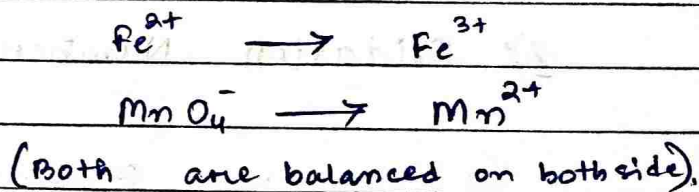 Fe²⁺ → Fe³⁺
MnO₄⁻ → Mn²⁺
(Both are balanced on both side).